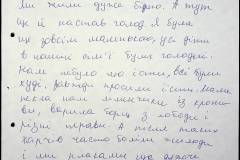 Ми жили дуже бідно. А тут
ще й настав голод. Я була
ще зовсім маленькою, усі діти
в нашій сім'ї були голодні.
Нам небуло що їсти, всі були
худі, завжди просили їсти. Мама
пекла нам млинчики із кропи-
ви, варила борщ з лободи і
різні трави. А після таких
харчів часто боліли животи
і ми плакали